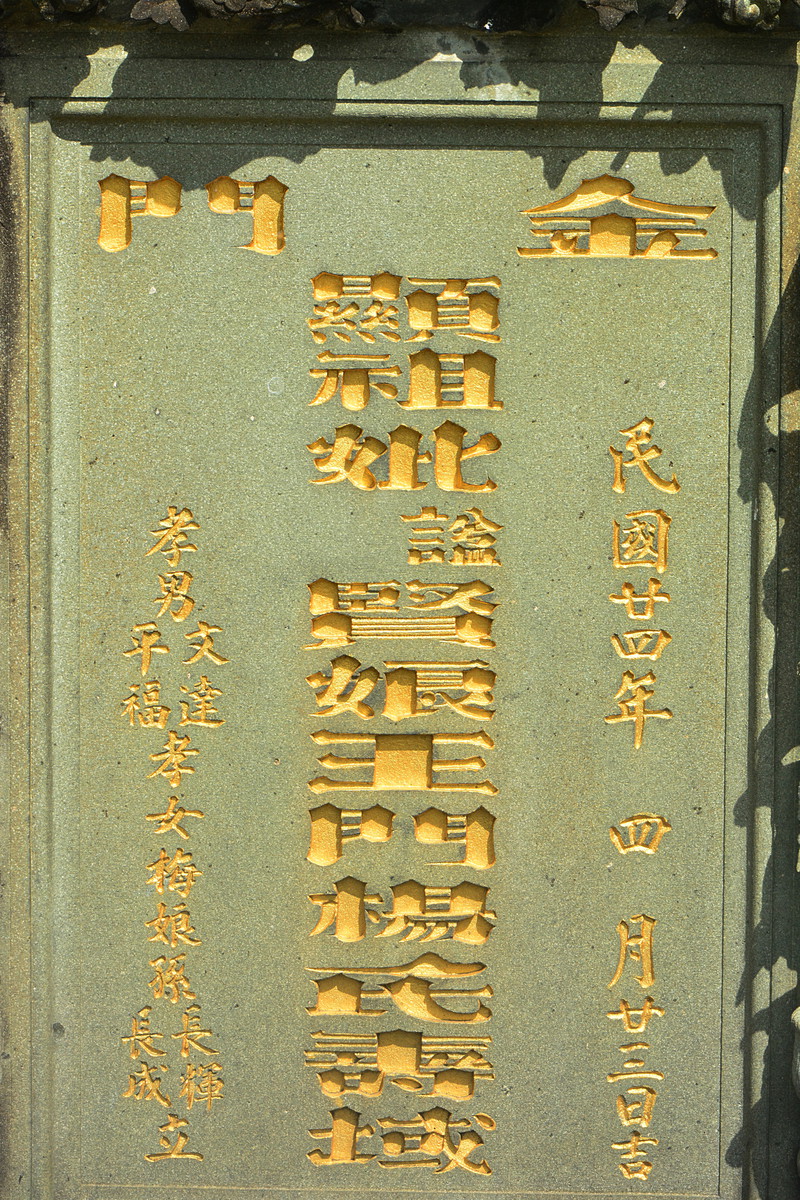 金門
民國廿四年 四 月廿三日吉
顯祖妣 謚賢娘王門楊氏壽域
孝男文達平福孝女梅娘孫長輝長成立